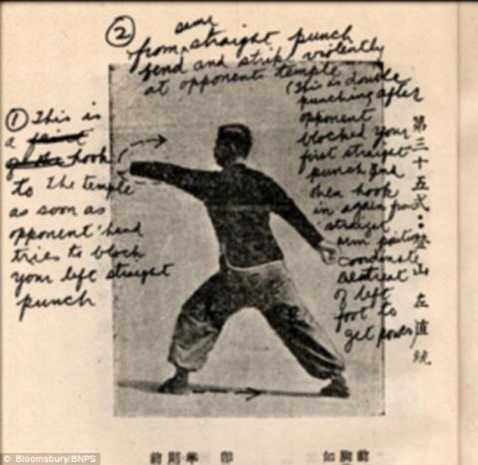 ② same
from straight punch
and violently
at opponents temple
(This is double
punching, after
opponent
blocked your
first straight
punch and
then hook
in again from
straight
arm position
coordinate
of left
foot to
get power)
① This is
a
hook
to the temple
as soon as
opponent' hand
tries to block
your left straight
punch
第三十五式：登山左直
© Bloomsbury/BNPS